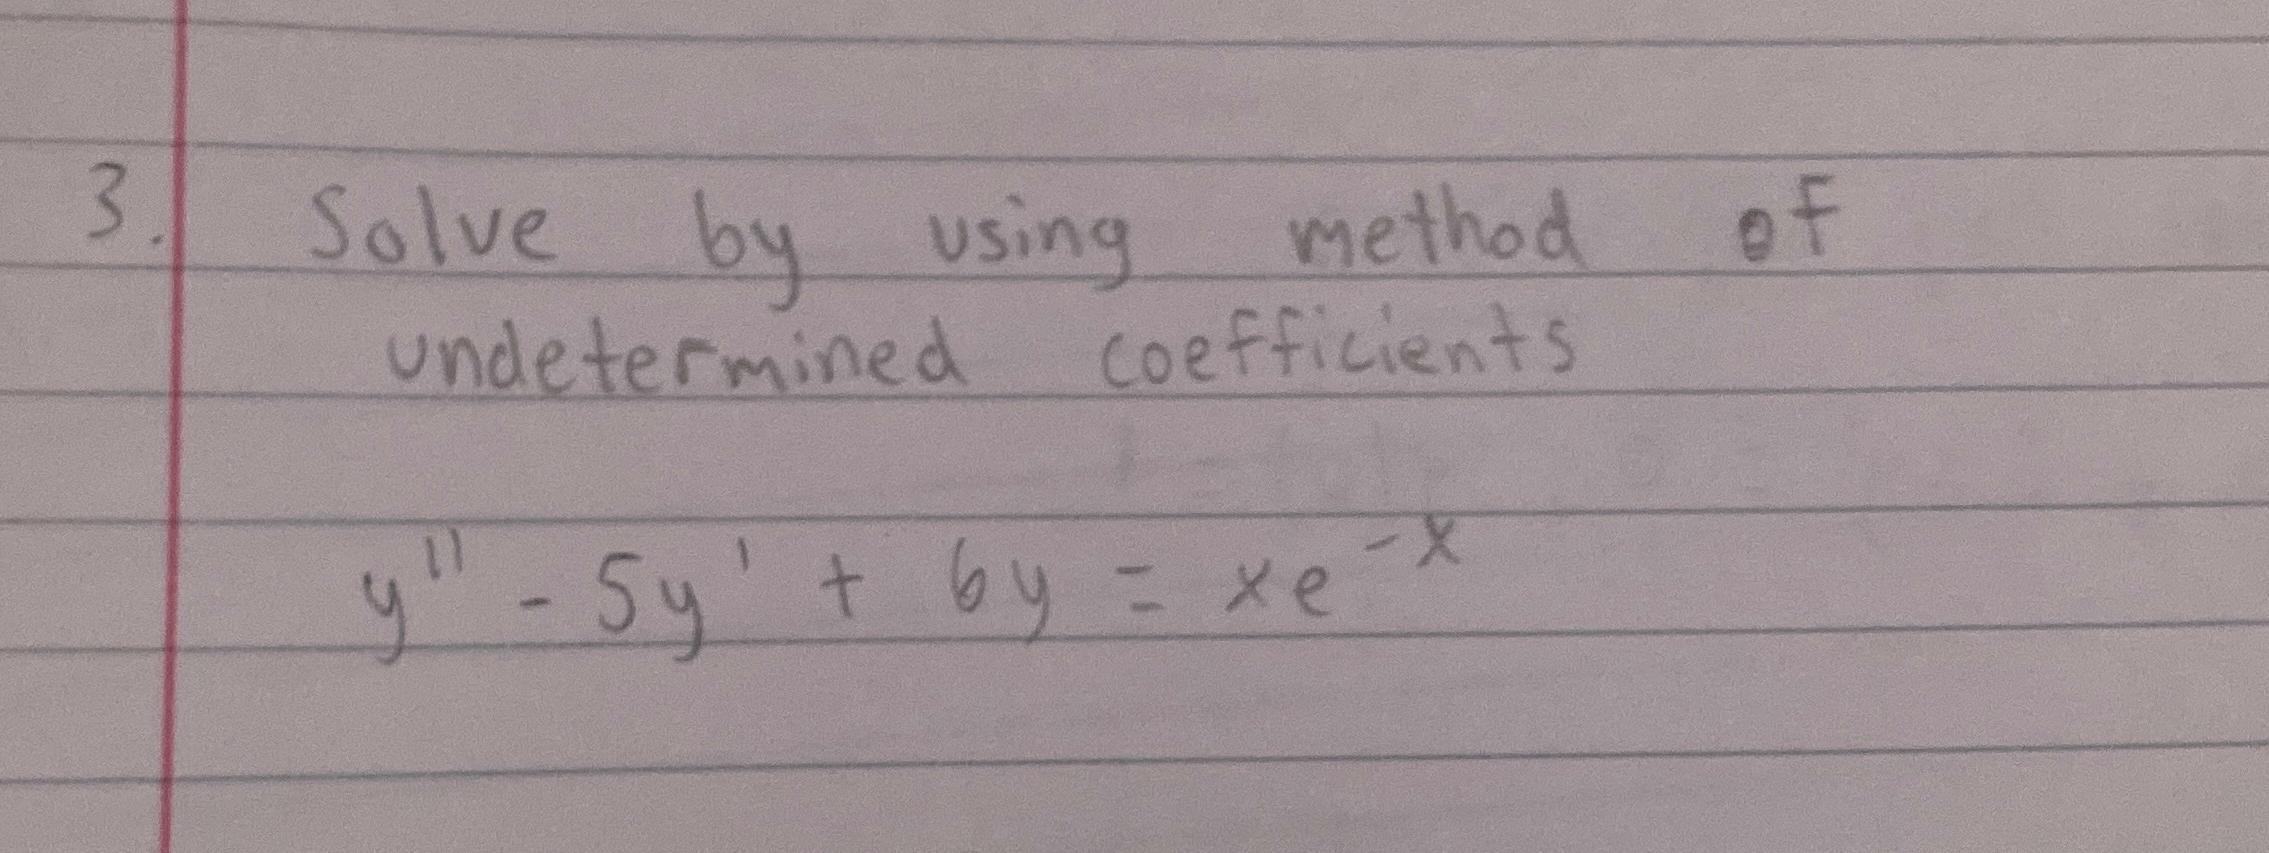 3. Solve by using method of
undetermined coefficients
y'' - 5y' + 6y = xe^{-x}